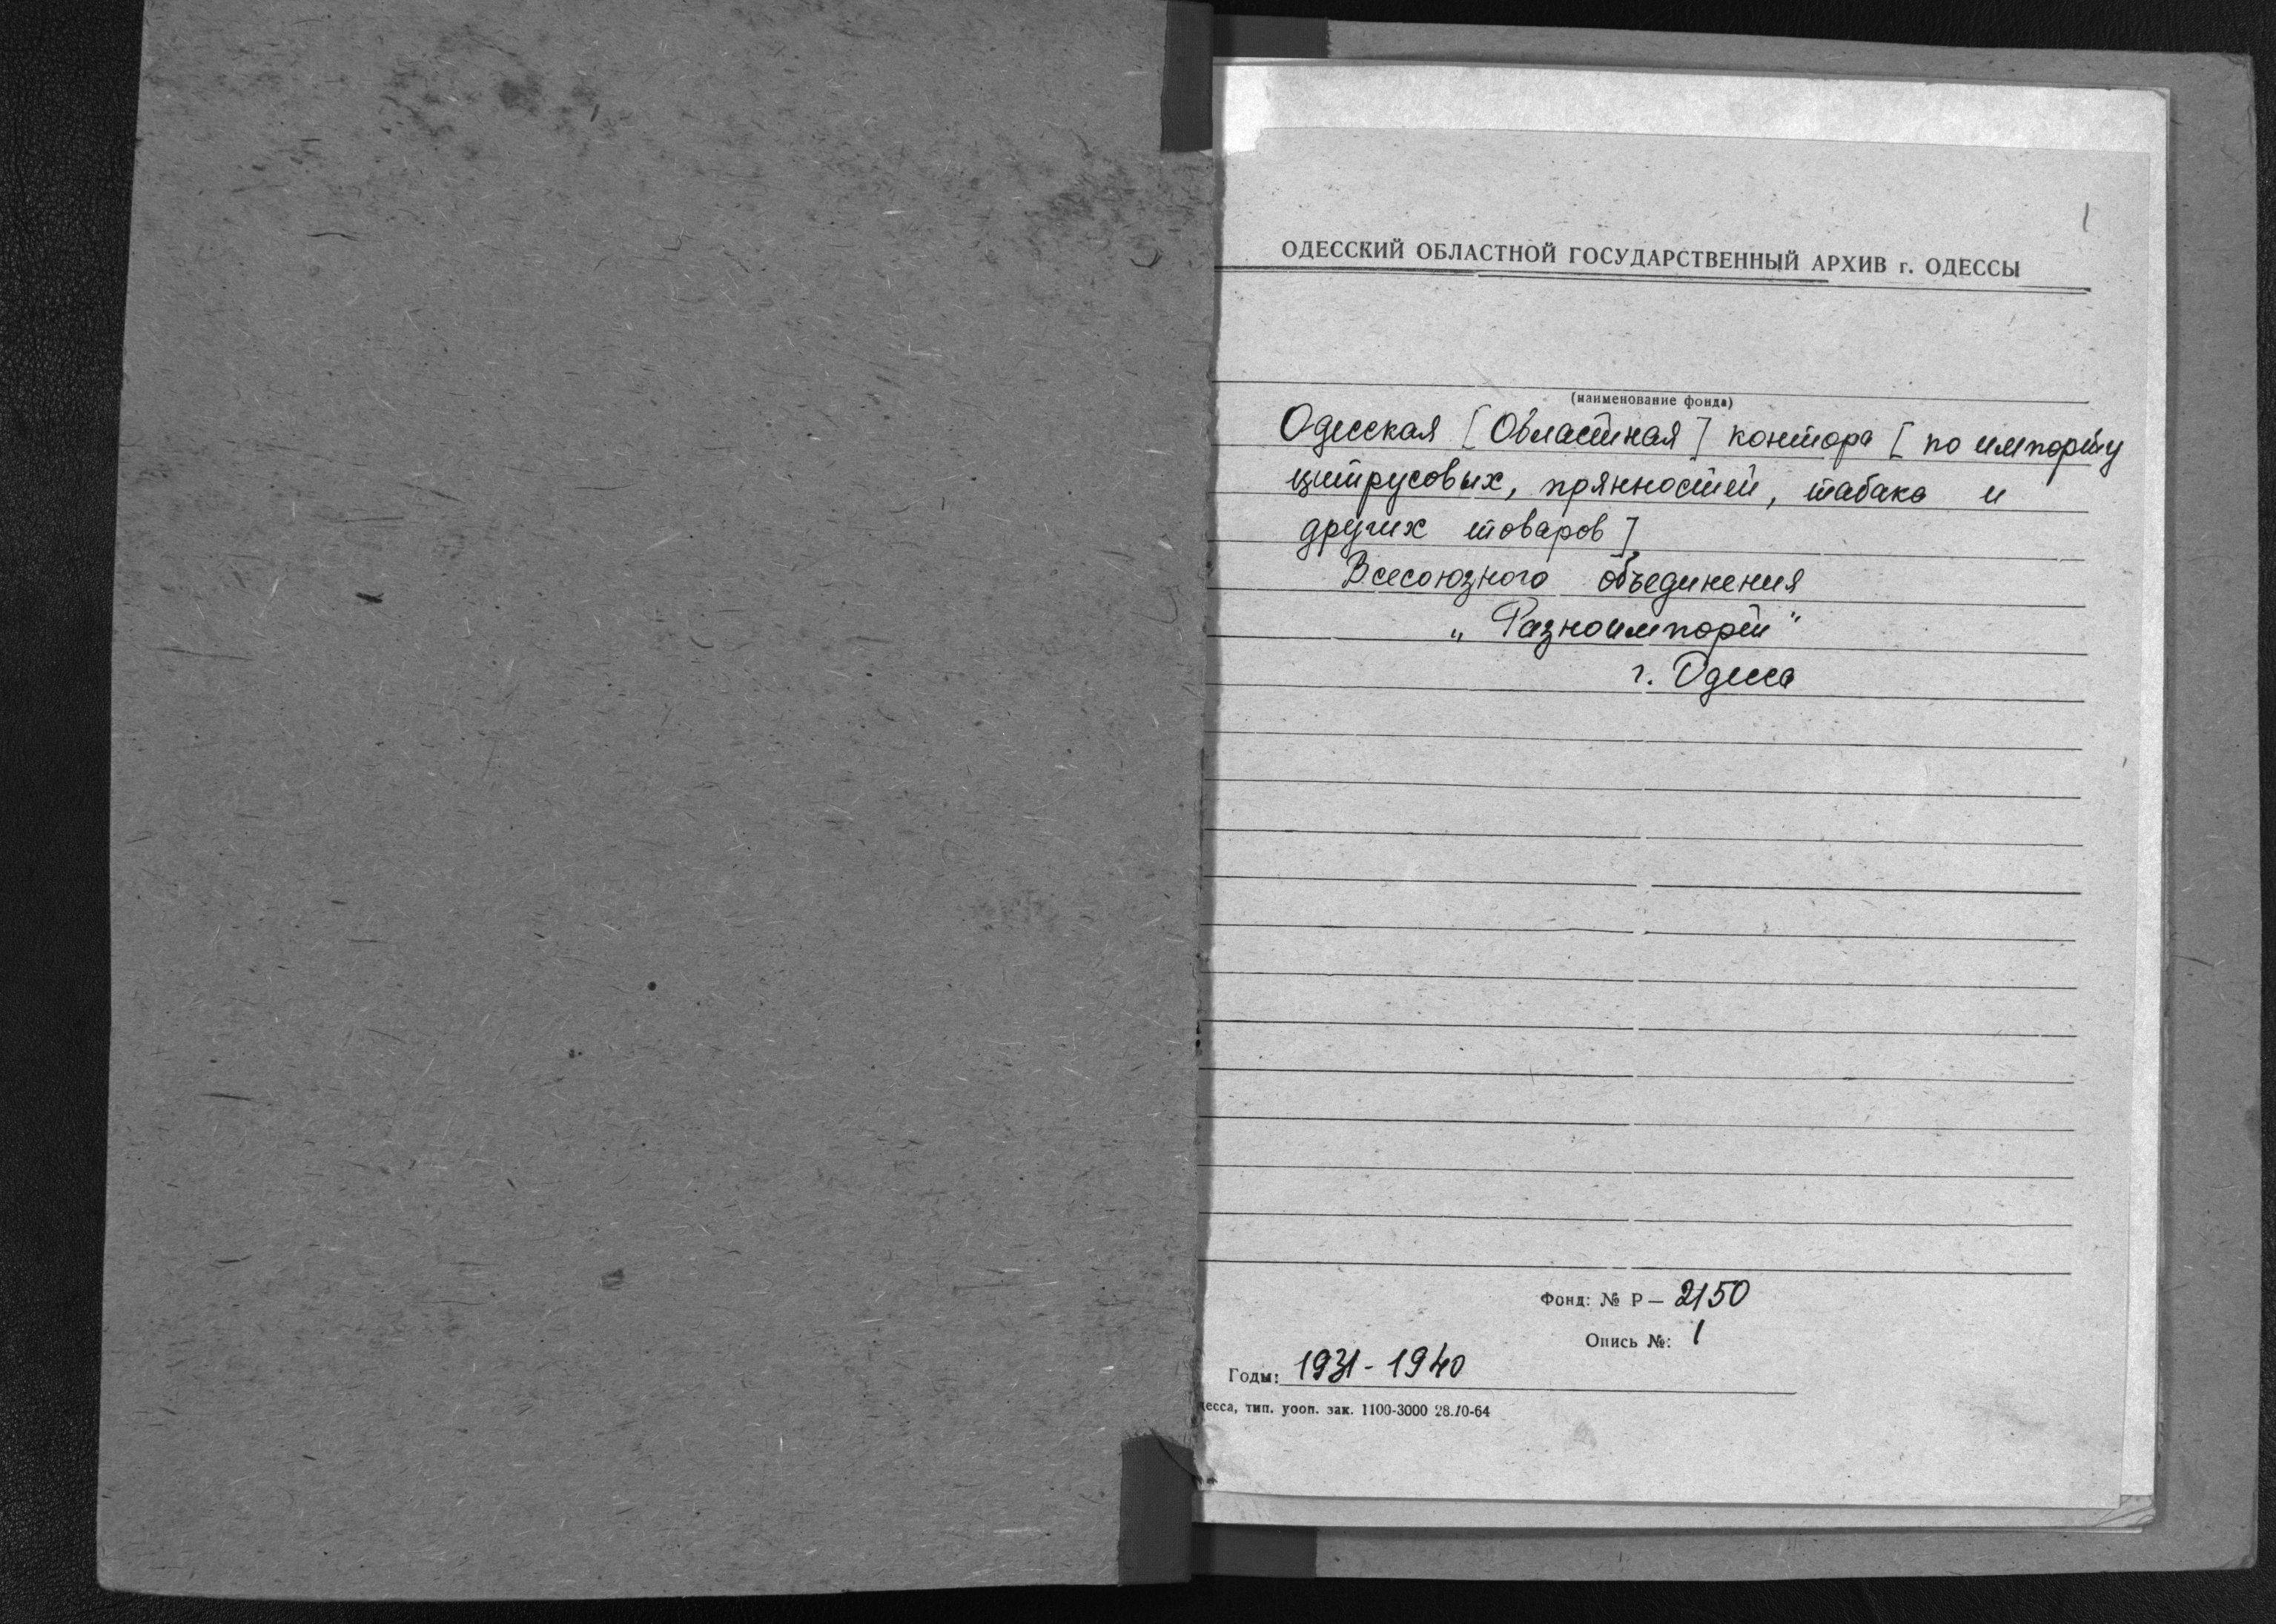 1
ОДЕССКИЙ ОБЛАСТНОЙ ГОСУДАРСТВЕННЫЙ АРХИВ г. ОДЕССЫ
(наименование фонда)
Одесская [Областная] контора [по импорту
цитрусовых, прянностей, табака и
других товаров]
Всесоюзного объединения
„Разноимпорт"
г. Одесса
Фонд: № Р — 2150
Опись №: 1
Годы: 1931 - 1940
десса, тип. уооп. зак. 1100-3000 28.10-64